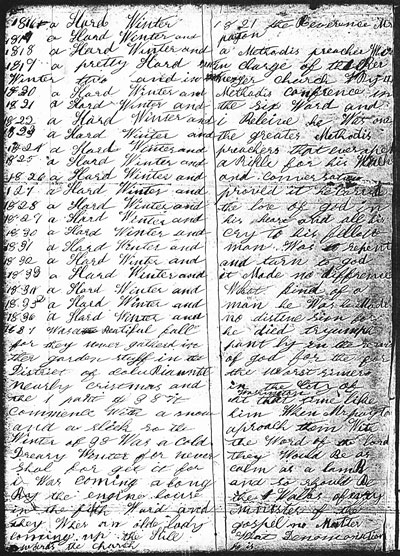 1816 a Hard Winter
1817 a Hard Winter and
1818 a Hard Winter and
1819 a pretty Hard
Winter two and in
1820 a Hard Winter and
1821 a Hard Winter and
1822 a Hard Winter and
1823 a Hard Winter and
1824 a Hard Winter and
1825 a Hard Winter and
1826 a Hard Winter and
127 a Hard Winter and
1828 a Hard Winter and
1829 a Hard Winter and
1830 a Hard Winter and
1831 a Hard Winter and
1832 a Hard Winter and
1833 a Hard Winter and
1834 a Hard Winter and
1835 a Hard Winter and
1836 a Hard Winter and
1837 Was a Beutiful fall
for they never gathered in
ther garden stuff in the
District of
neurly Cristmas and
the 1 part of 98 it
commence With a snow
and a slick so the
Winter of 98 Was a Cold
Dreary Winter for never
Shal for git it for
i Was coming a long
By the engine house
in the fifth Ward and
they Wher an old lady
coming up the Hill
towards the church
1821 the Reverense Mr
payton
a Methodis preacher Wos
in charge of the
Church
Methodis conference in
the Six Ward and
i Beleive he Was one
the greater Methodis
preachers that ever
a for his Walk
and conversation
proved it he carried
the love of god in
his heart and all his
Cry to his fellow
man Was to repent
and turn to god
it Made no diffrence
What kind of a
man he Was he Made
no distinc sion for
he died tryumph
pant ly in the
of god for the for
the Worst sinners
in the City of
at that time like
him When Mr payton
aproach them With
the Word of the lord
they Would Be as
calm as a lamb
and so should Be
the Walks of every
minister of the
gospel no Matter
What Denomination
he is